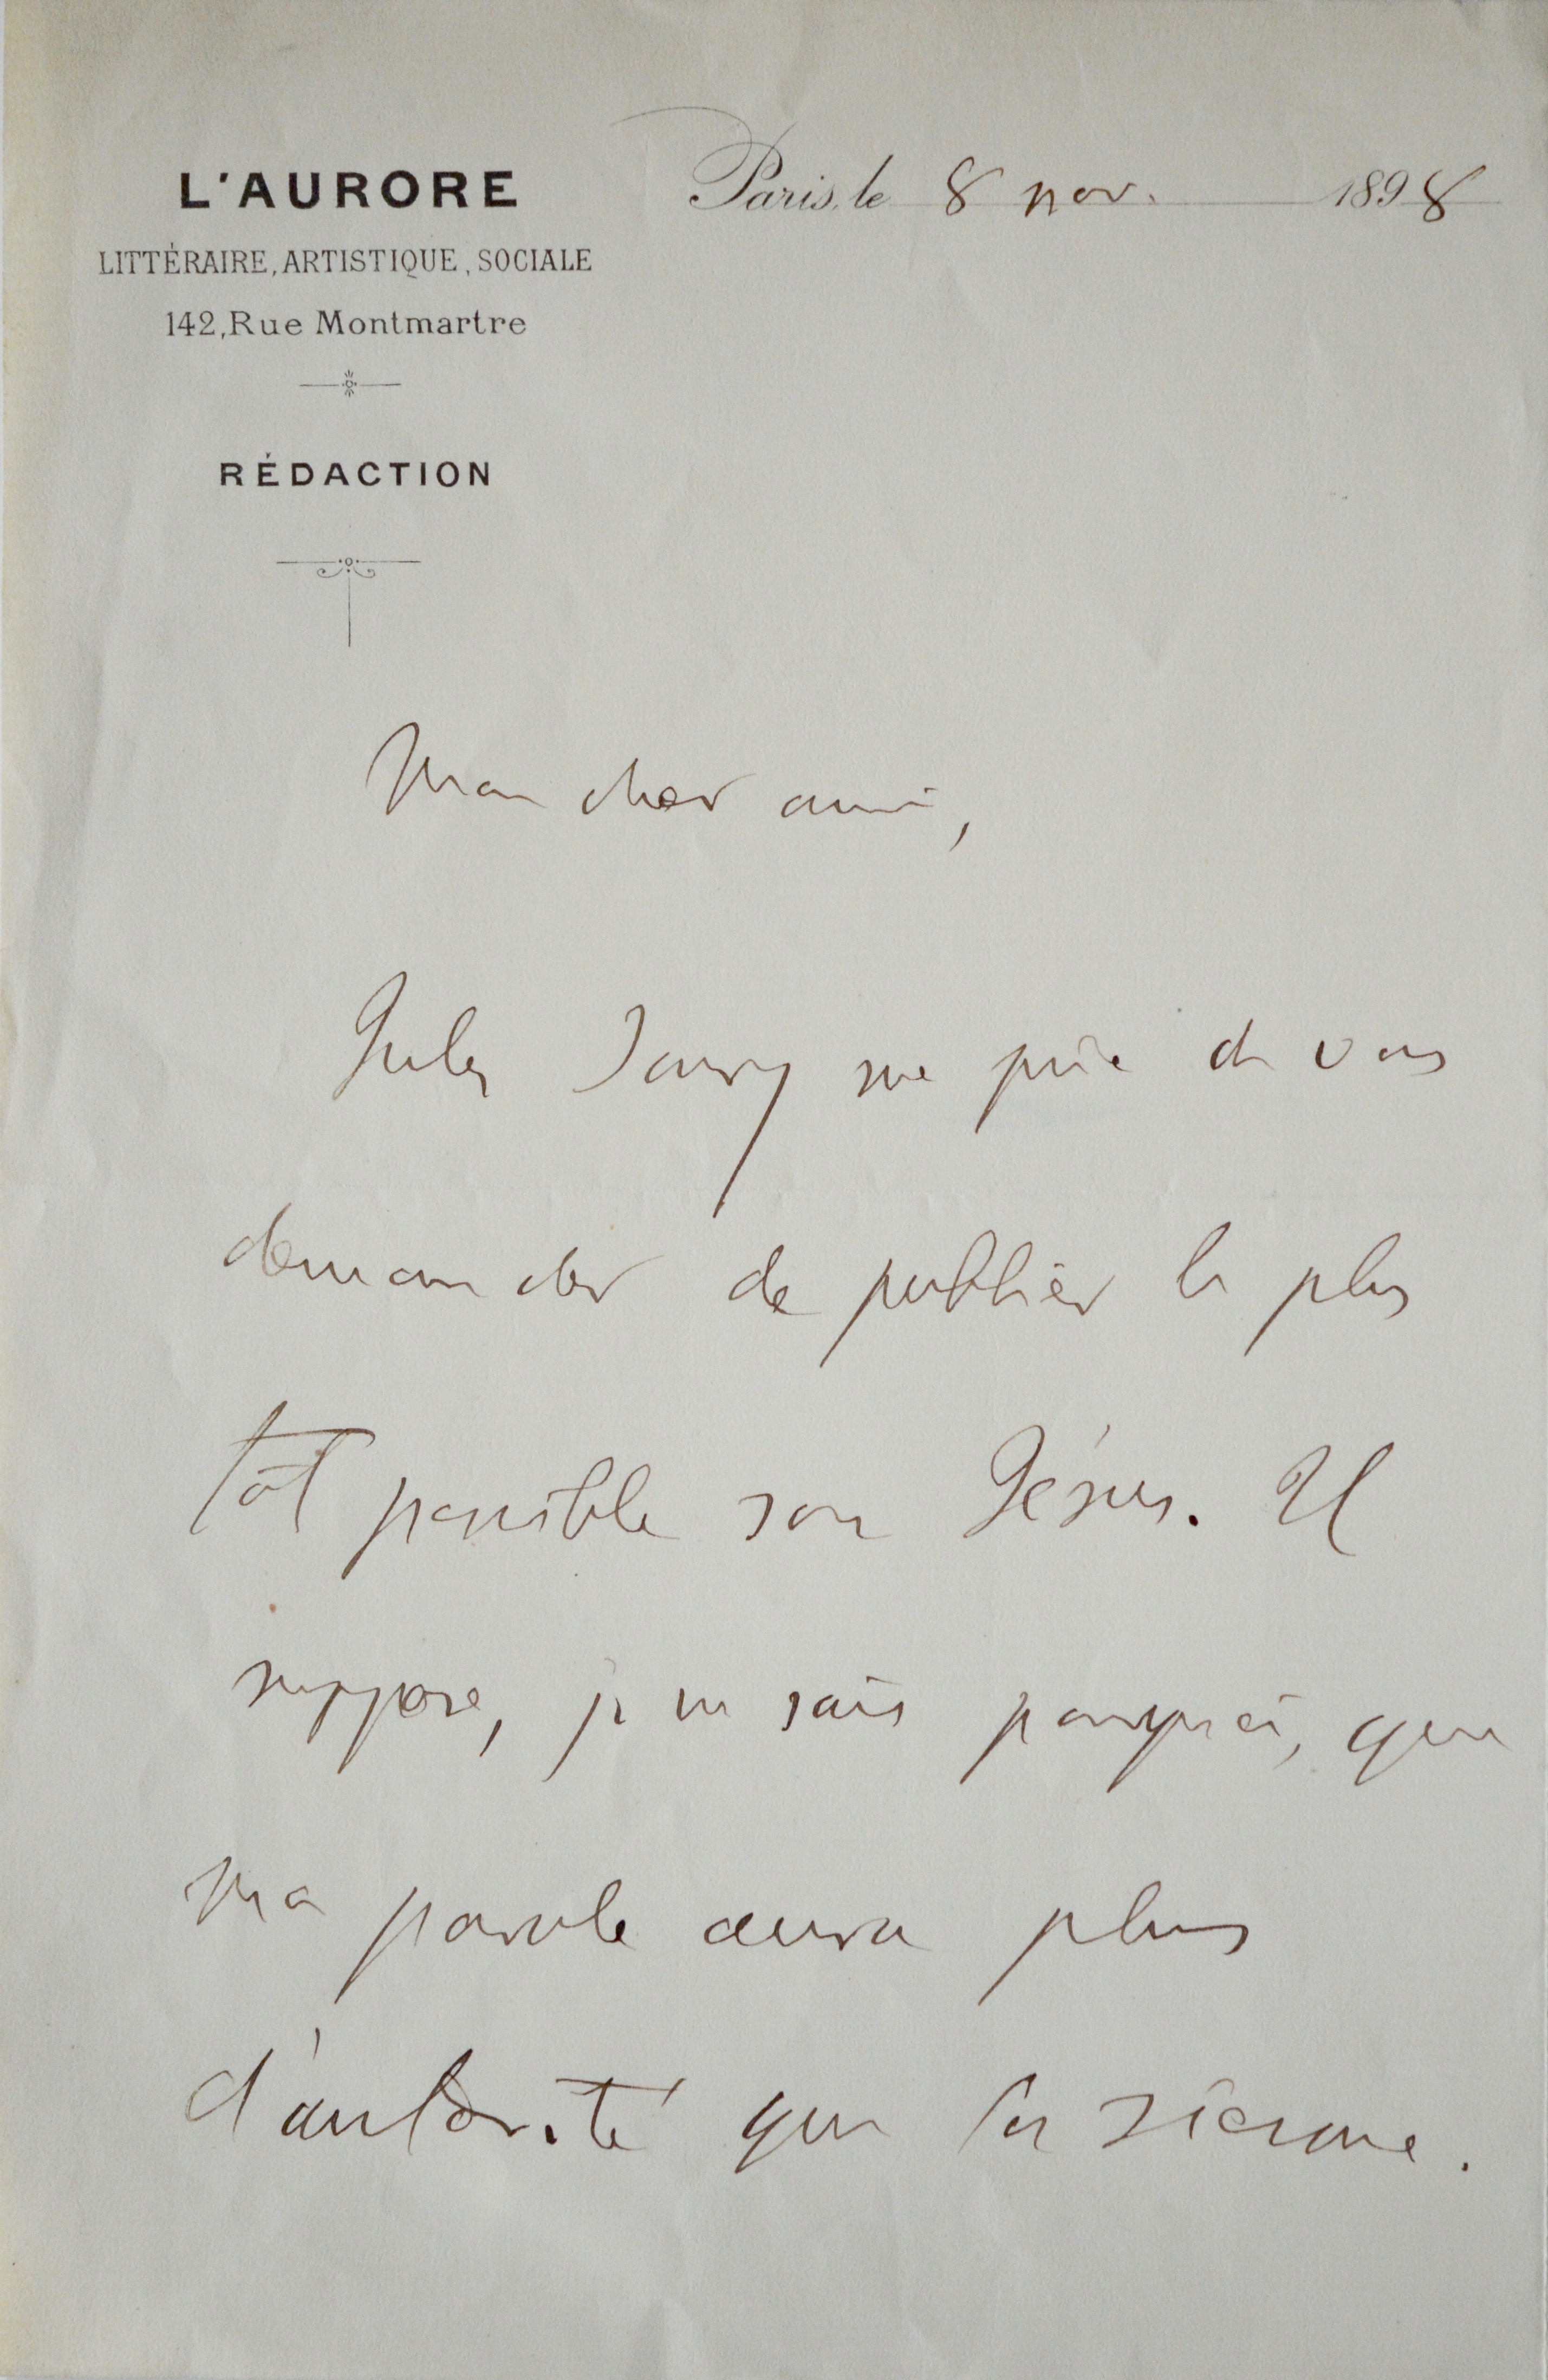 L'AURORE
Paris, le 8 nov. 1898
LITTÉRAIRE, ARTISTIQUE, SOCIALE
142, Rue Montmartre
RÉDACTION
Mon cher ami,
Jules Soury me prie de vous
demander de publier le plus
tôt possible son Jésus. Il
suppose, je ne sais pourquoi, que
ma parole aura plus
d'autorité que la sienne.